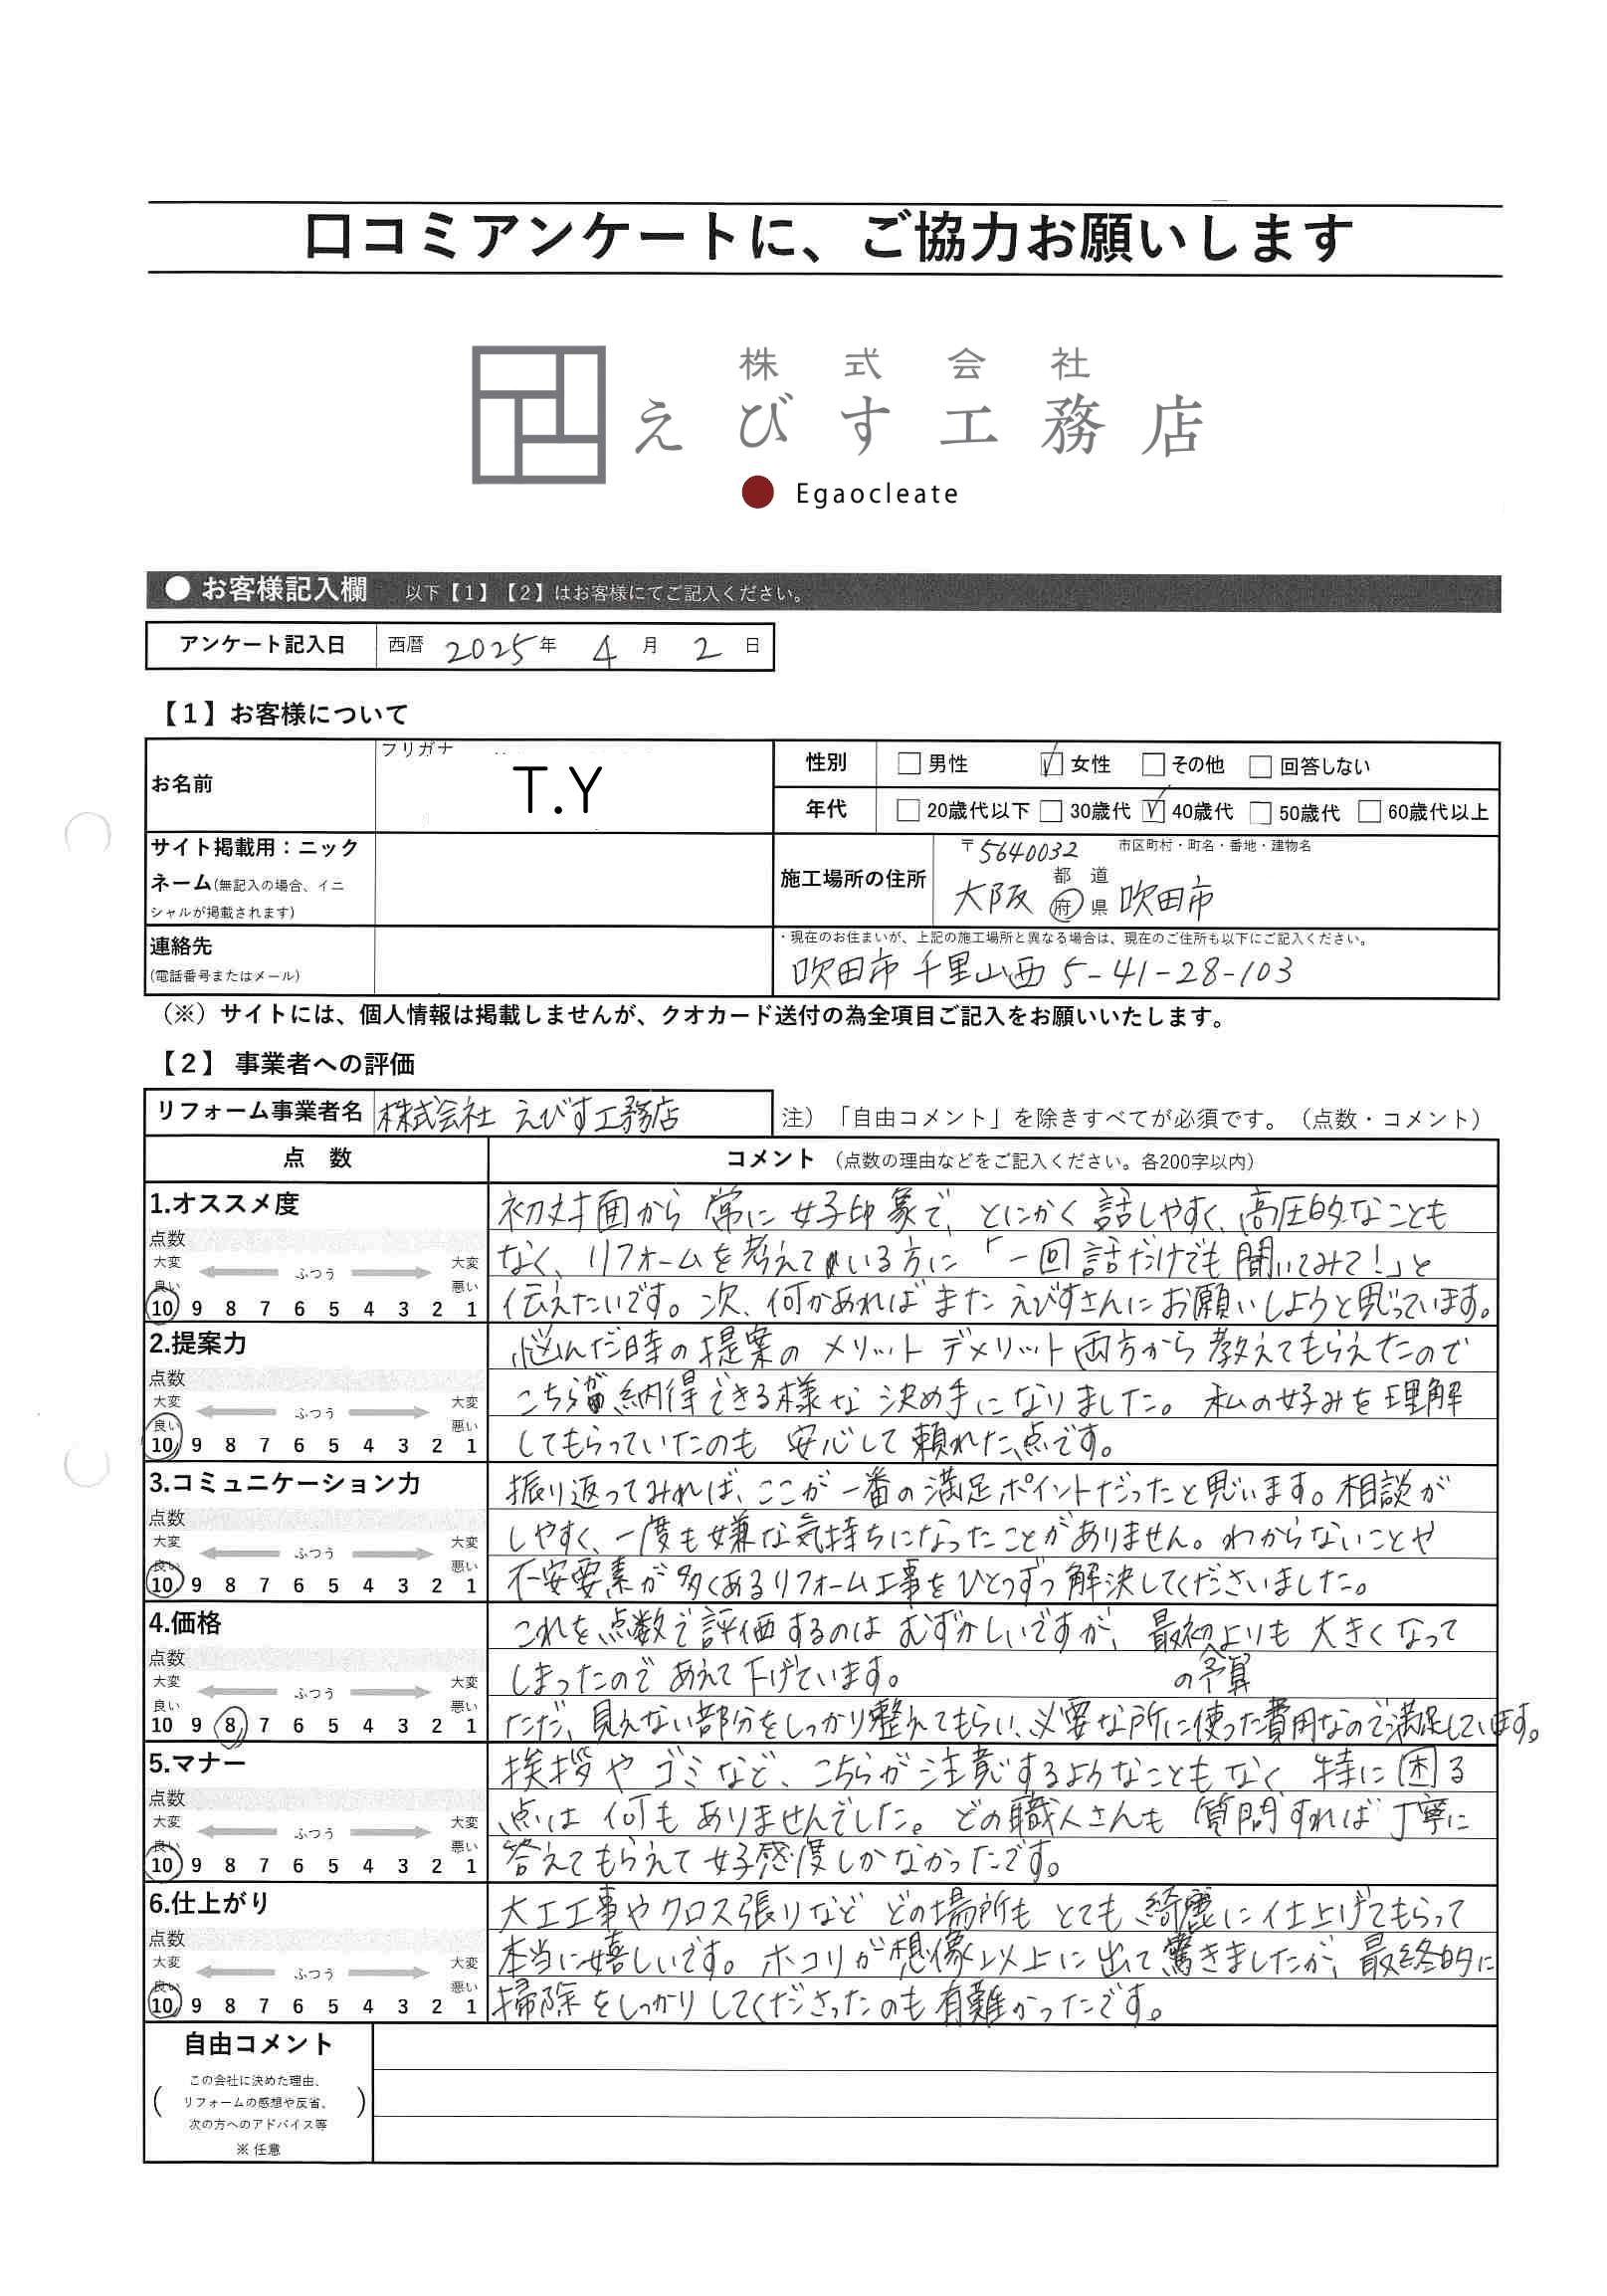 口コミアンケートに、ご協力お願いします
株式会社
えびす工務店
Egaocleate
● お客様記入欄 以下【1】【2】はお客様にてご記入ください。
アンケート記入日 西暦 2025年 4月 2日
【1】お客様について
お名前 フリガナ T.Y
性別 男性 女性 その他 回答しない
年代 20歳代以下 30歳代 40歳代 50歳代 60歳代以上
サイト掲載用：ニックネーム(無記入の場合、イニシャルが掲載されます)
施工場所の住所 〒5640032 市区町村・町名・番地・建物名
大阪 都道府県 吹田市
連絡先
(電話番号またはメール)
・現在のお住まいが、上記の施工場所と異なる場合は、現在のご住所も以下にご記入ください。
吹田市 千里山西 5-41-28-103
（※）サイトには、個人情報は掲載しませんが、クオカード送付の為全項目ご記入をお願いいたします。
【2】 事業者への評価
リフォーム事業者名 株式会社 えびす工務店
注）「自由コメント」を除きすべてが必須です。（点数・コメント）
点 数 コメント （点数の理由などをご記入ください。各200字以内）
1.オススメ度
点数
大変良い ふつう 大変悪い
10 9 8 7 6 5 4 3 2 1
初対面から 常に 好印象で、とにかく 話しやすく、高圧的なことも
なく、リフォームを考えている方に「一回 話だけでも 聞いてみて！」と
伝えたいです。次、何かあれば また えびすさんに お願いしようと思っています。
2.提案力
点数
大変良い ふつう 大変悪い
10 9 8 7 6 5 4 3 2 1
悩んだ時の提案の メリット デメリット 両方から 教えてもらえたので
こちらが 納得できる様な 決め手になりました。 私の好みを理解
してもらっていたのも 安心して 頼れた点です。
3.コミュニケーション力
点数
大変良い ふつう 大変悪い
10 9 8 7 6 5 4 3 2 1
振り返ってみれば、ここが一番の満足ポイントだったと思います。相談が
しやすく、一度も嫌な気持ちになったことがありません。わからないことや
不安要素が多くあるリフォーム工事をひとつずつ解決してくださいました。
4.価格
点数
大変良い ふつう 大変悪い
10 9 8 7 6 5 4 3 2 1
これを点数で評価するのは むずかしいですが、最初の予算よりも 大きくなって
しまったので あえて下げています。
ただ、見えない部分をしっかり整えてもらい、必要な所に使った費用なので満足しています。
5.マナー
点数
大変良い ふつう 大変悪い
10 9 8 7 6 5 4 3 2 1
挨拶や ゴミなど、こちらが注意するようなこともなく 特に困る
点は 何も ありませんでした。どの職人さんも 質問すれば 丁寧に
答えてもらえて 好感度しかなかったです。
6.仕上がり
点数
大変良い ふつう 大変悪い
10 9 8 7 6 5 4 3 2 1
大工工事やクロス張りなど どの場所も とても 綺麗に仕上げてもらって
本当に嬉しいです。ホコリが想像以上に出て驚きましたが、最終的に
掃除をしっかりしてくださったのも有難かったです。
自由コメント
この会社に決めた理由、
リフォームの感想や反省、
次の方へのアドバイス等
※ 任意